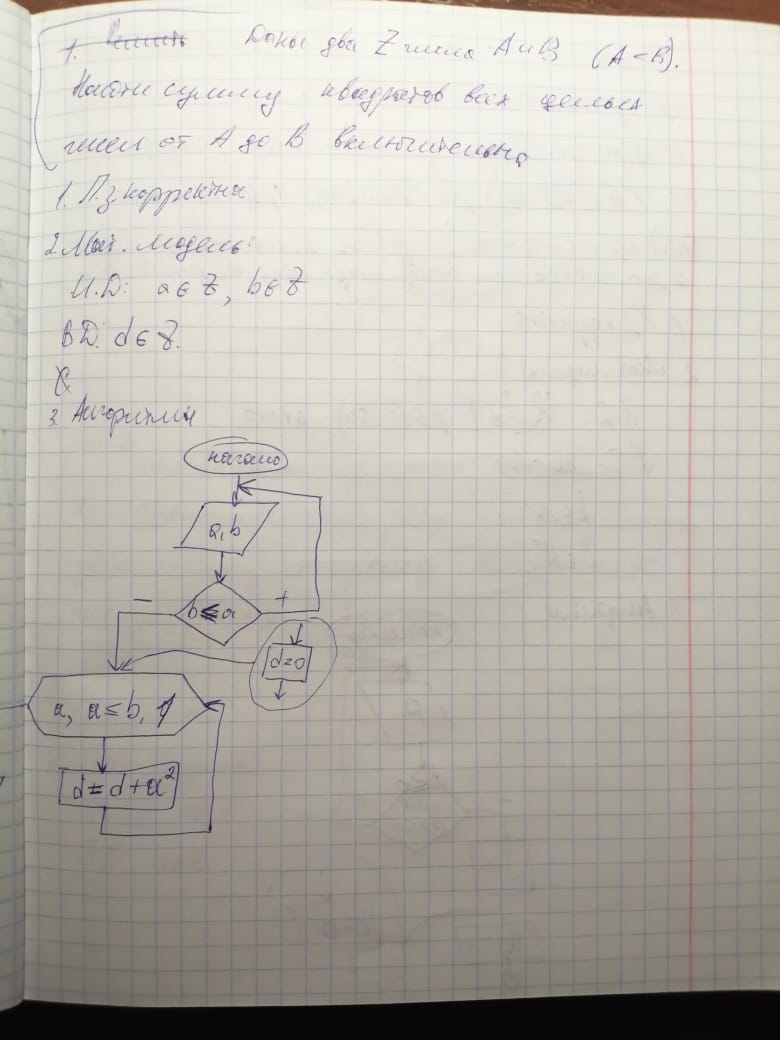 1. Решить Даны два Z числа A и B (A < B).
Найти сумму квадратов всех целых
чисел от A до B включительно
1. П.з. корректна
2. Мат. модель:
И.Д: a ∈ Z, b ∈ Z
ВД: d ∈ Z.
3. Алгоритм
начало
a, b
b ≤ a
− +
d=0
a, a ≤ b, 1
d = d + a²